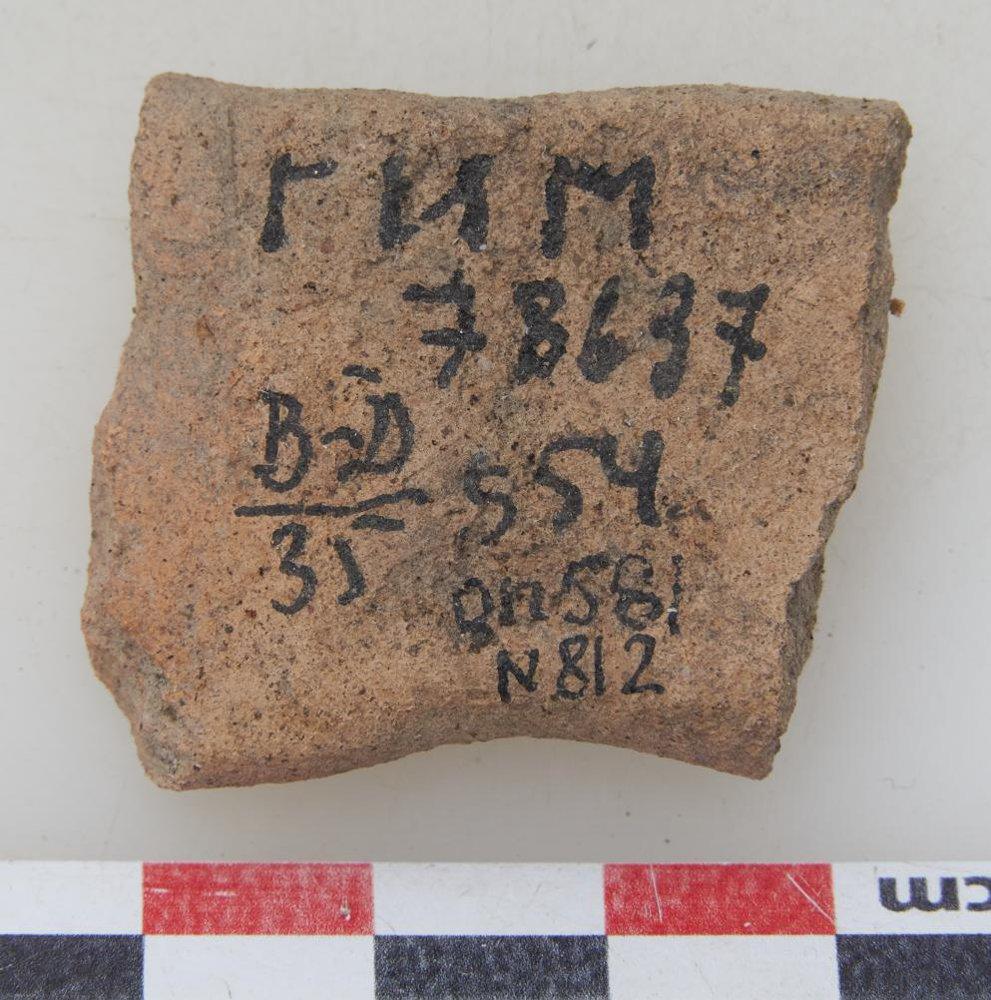 ГИМ
78637
В-D
35
554
оп 581
N 812
cm